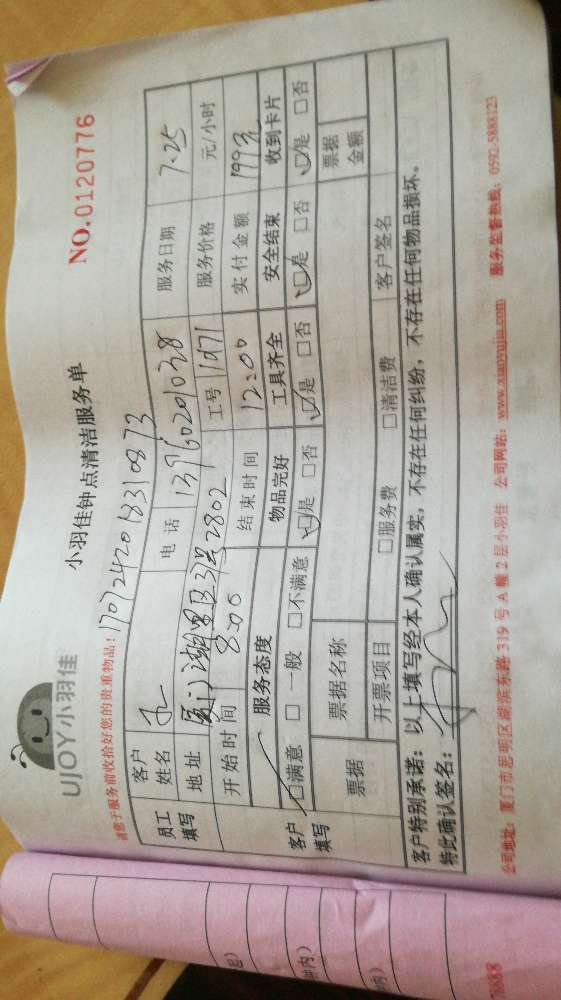 UJOY小羽佳
小羽佳钟点清洁服务单
NO.0120776
请您于服务前收拾好您的贵重物品!
员工填写
客户姓名
电话 13760201028
服务日期 7.25
地址
工号
服务价格 元/小时
开始时间 8:00
结束时间 12:00
实付金额 199元
客户填写
服务态度 物品完好 工具齐全 安全结束 收到卡片
□满意 □一般 □不满意 □是 □否 □是 □否 □是 □否 □是 □否
票据 票据名称 票据金额
开票项目 □服务费 □清洁费 客户签名
客户特别承诺：以上填写经本人确认属实，不存在任何纠纷，不存在任何物品损坏。
特此确认签名：
公司地址：厦门市思明区湖滨东路319号A幢2层小羽佳 公司网站：www.xiaoyujia.com 服务监督热线：0592-5888123